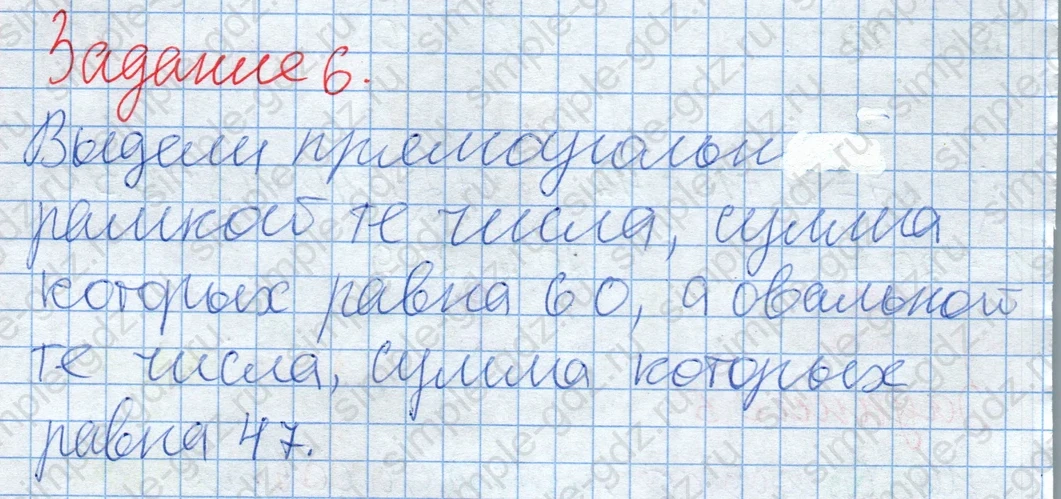 Задание 6.
Выдели прямоугольн
рамкой те числа, сумма
которых равна 60, а овальной
те числа, сумма которых
равна 47.